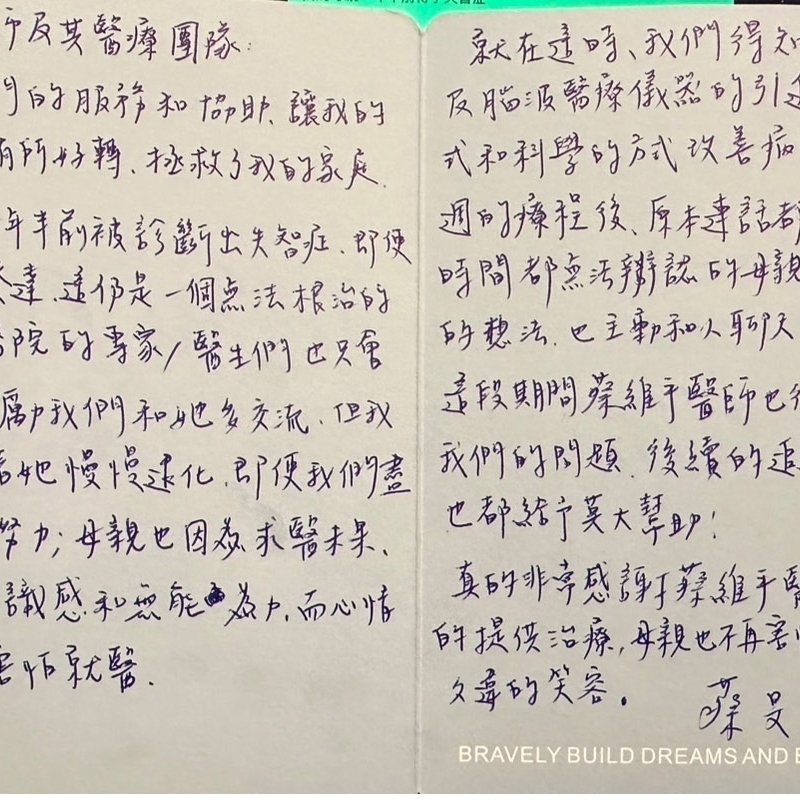 師及其醫療團隊：
們的服務和協助、讓我的
有所好轉、拯救了我的家庭.
年半前被診斷出失智症、即便
達、這仍是一個無法根治的
院的專家/醫生們也只會
勵我們和她多交流、但我
著她慢慢退化、即便我們盡
努力；母親也因為求醫未果、
識感和無能為力、而心情
害怕就醫.
就在這時、我們得知
及腦波醫療儀器的引進
式和科學的方式改善病
週的療程後、原本連話都
時間都無法辨認的母親
的想法、也主動和人聊天
這段期間蔡維手醫師也很
我們的問題、後續的追
也都給予莫大幫助！
真的非常感謝蔡維手醫
的提供治療，母親也不再害怕
久違的笑容。
蔡旻
BRAVELY BUILD DREAMS AND